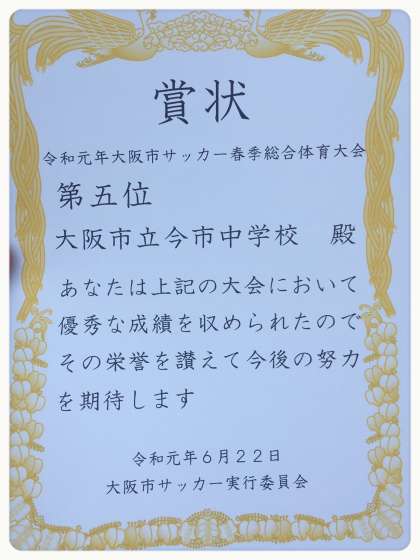 賞状
令和元年大阪市サッカー春季総合体育大会
第五位
大阪市立今市中学校　殿
あなたは上記の大会において
優秀な成績を収められたので
その栄誉を讃えて今後の努力
を期待します
令和元年６月２２日
大阪市サッカー実行委員会